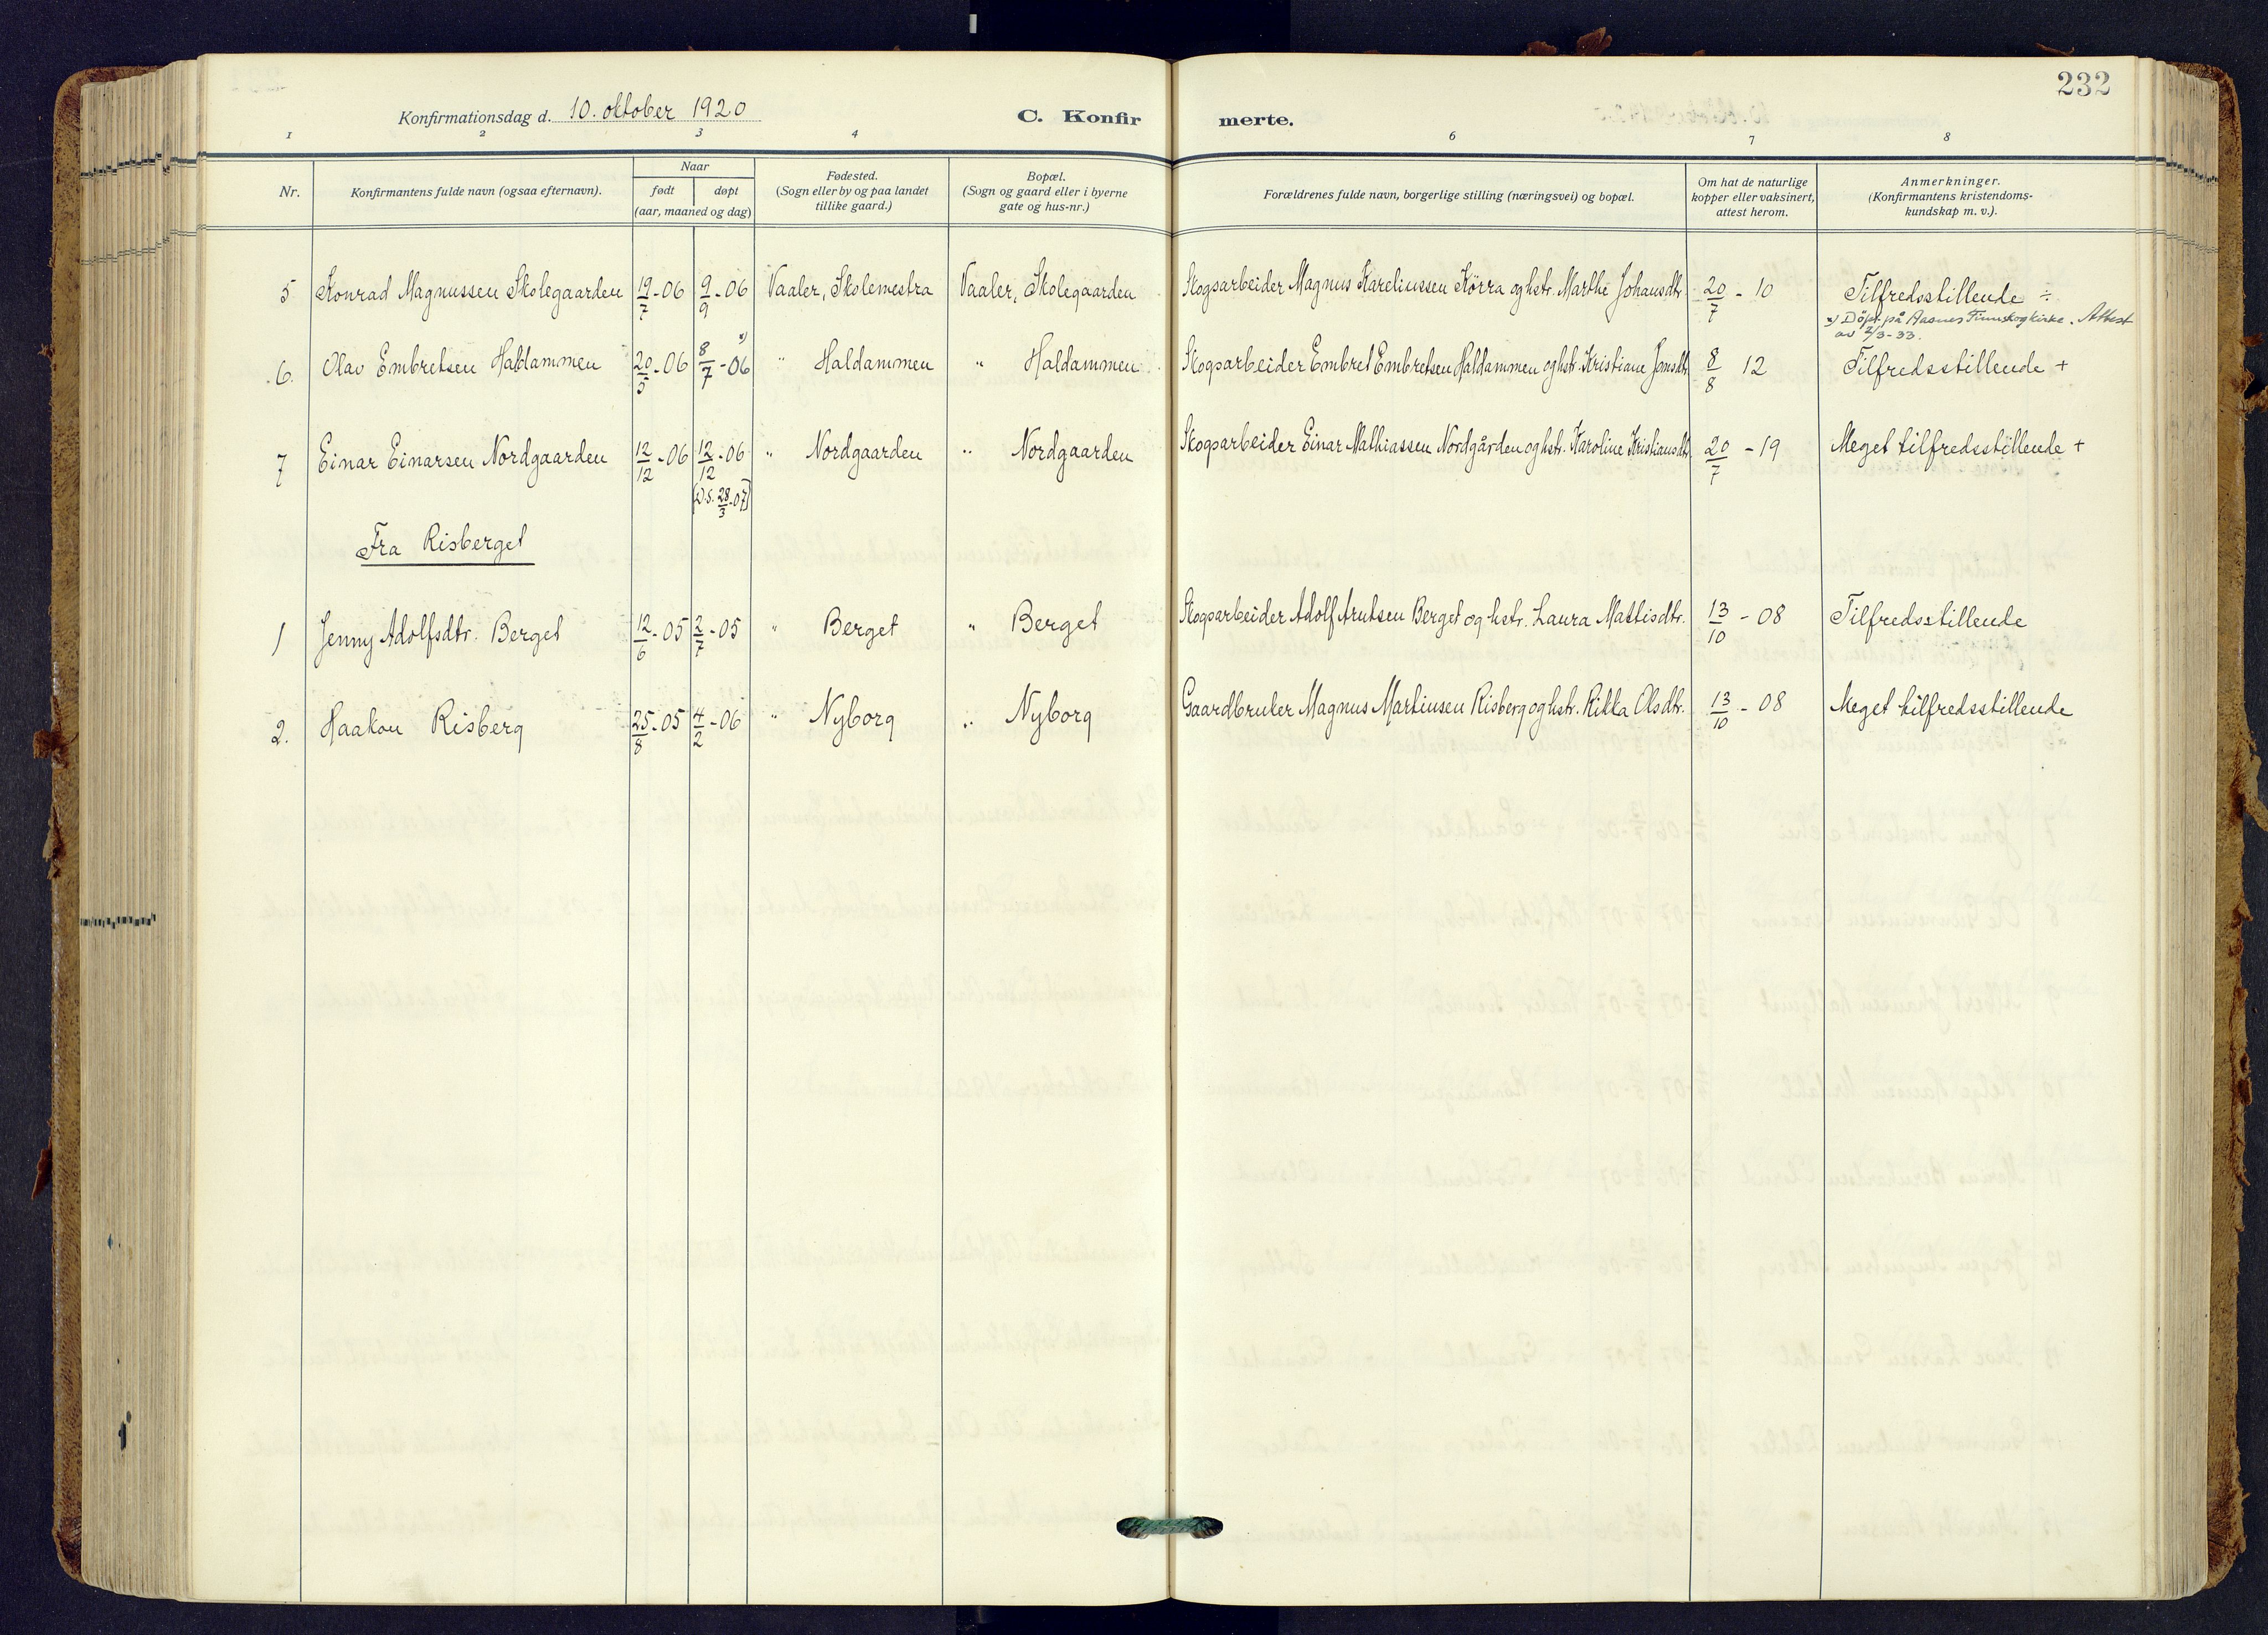 232
Konfirmationsdag d. 10. oktober 1920 C. Konfir merte.
1 2 3 4 6 7 8
Nr. Konfirmantens fulde navn (ogsaa efternavn). Naar født døpt (aar, maaned og dag) Fødested. (Sogn eller by og paa landet tillike gaard.) Bopæl. (Sogn og gaard eller i byerne gate og hus-nr.) Forældrenes fulde navn, borgerlige stilling (næringsvei) og bopæl. Om hat de naturlige kopper eller vaksinert, attest herom. Anmerkninger. (Konfirmantens kristendoms-kundskap m. v.).
5 Konrad Magnussen Skolegaarden 19/7-06 9/9-06 Vaaler, Skolemestra Vaaler, Skolegaarden Skogsarbeider Magnus Kareliussen Kørra og hstr. Marthe Johansdtr. 20/7 - 10 Tilfredsstillende ÷
x) Döpt på Aasnes Finnskog kirke. Attest av 2/3-33.
6. Olav Embretsen Haldammen 20/5-06 8/7-06 x) " Haldammen " Haldammen Skogsarbeider Embret Embretsen Haldammen og hstr. Kristiane Jonsdtr. 8/8 12 Tilfredsstillende +
7 Einar Einarsen Nordgaarden 12/12-06 12/12-06 " Nordgaarden " Nordgaarden Skogsarbeider Einar Mathiassen Nordgården og hstr. Karoline Kristiansdtr. 20/7 - 19 Meget tilfredsstillende +
(D.S. 28/3-07)
Fra Risberget
1 Jenny Adolfsdtr. Berget 12/6-05 2/7-05 " Berget " Berget Skogsarbeider Adolf Arntsen Berget og hstr. Laura Mattisdtr. 13/10 - 08 Tilfredsstillende
2. Haakon Risberg 25/8-05 4/2-06 " Nyborg " Nyborg Gaardbruker Magnus Martinsen Risberg og hstr. Rikka Olsdtr. 13/10 - 08 Meget tilfredsstillende